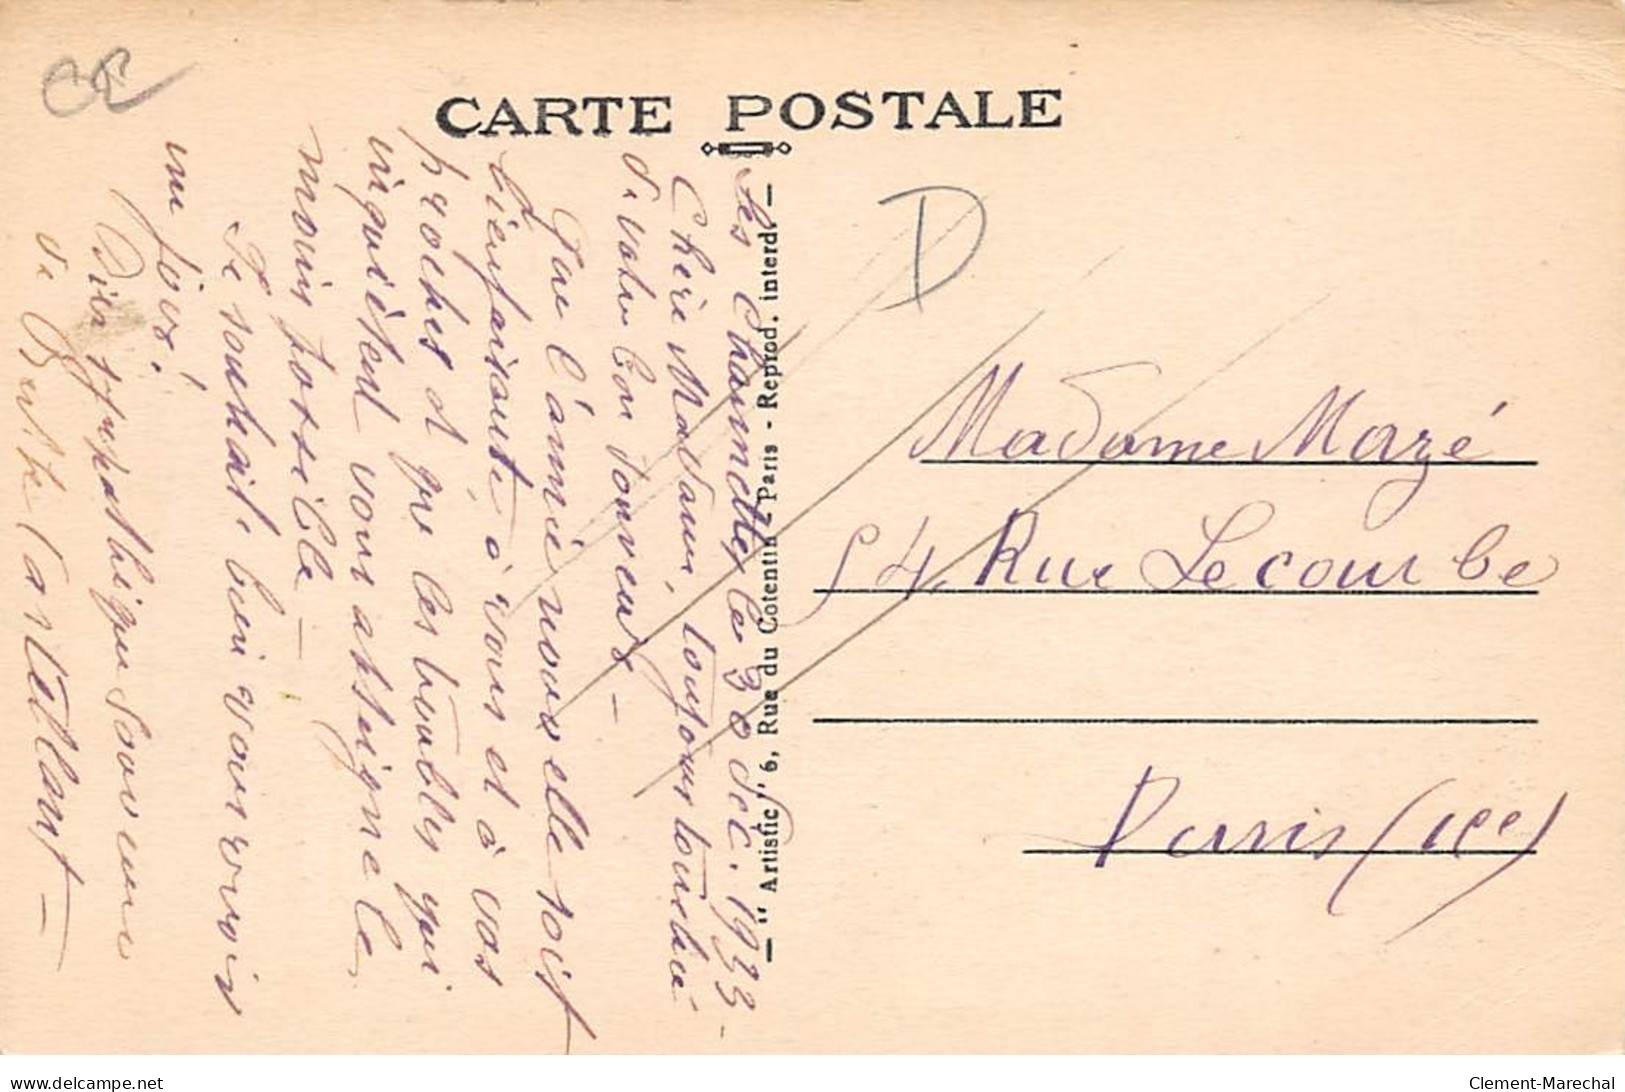 CE
CARTE POSTALE
D
Les Charmettes, le 30 Déc. 1933 -
Chère Madame, toujours touchée
de votre bon souvenir -
Que l'année nouvelle soit
bienfaisante à vous et à vos
proches et que les troubles qui
inquiètent vous atteignent le
moins possible -
Je souhaite bien vous revoir
un jour !
Bien sympathique souvenir
de Berthe
— " Artistic " 6, Rue du Cotentin - Paris - Reprod. interd. —
Madame Mazé
54, Rue Lecourbe
Paris
delcampe.net
Clement-Marechal